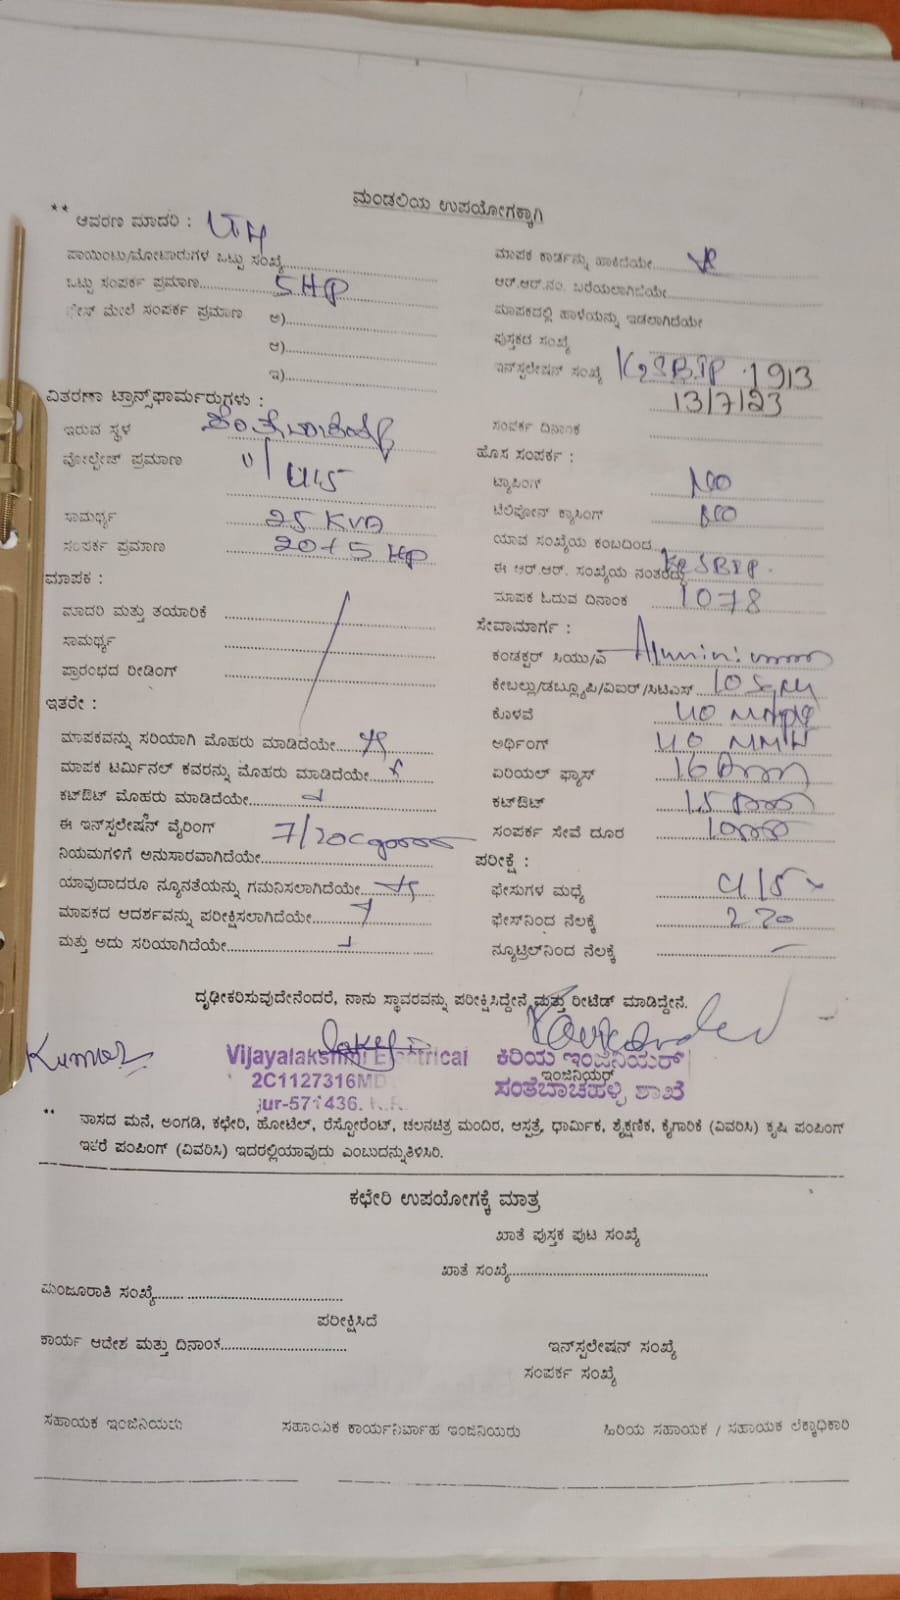 ಮಂಡಲಿಯ ಉಪಯೋಗಕ್ಕಾಗಿ
** ಆವರಣ ಮಾದರಿ :
ಪಾಯಿಂಟು/ಮೋಟಾರುಗಳ ಒಟ್ಟು ಸಂಖ್ಯೆ
ಒಟ್ಟು ಸಂಪರ್ಕ ಪ್ರಮಾಣ 5 HP
ಫೇಸ್ ಮೇಲೆ ಸಂಪರ್ಕ ಪ್ರಮಾಣ ಅ)
ಆ)
ಇ)
ವಿತರಣಾ ಟ್ರಾನ್ಸ್‌ಫಾರ್ಮರುಗಳು :
ಇರುವ ಸ್ಥಳ
ವೋಲ್ಟೇಜ್ ಪ್ರಮಾಣ
ಸಾಮರ್ಥ್ಯ 25 KVA
ಸಂಪರ್ಕ ಪ್ರಮಾಣ 20+5 HP
ಮಾಪಕ :
ಮಾದರಿ ಮತ್ತು ತಯಾರಿಕೆ
ಸಾಮರ್ಥ್ಯ
ಪ್ರಾರಂಭದ ರೀಡಿಂಗ್
ಇತರೇ :
ಮಾಪಕವನ್ನು ಸರಿಯಾಗಿ ಮೊಹರು ಮಾಡಿದೆಯೇ
ಮಾಪಕ ಟರ್ಮಿನಲ್ ಕವರನ್ನು ಮೊಹರು ಮಾಡಿದೆಯೇ
ಕಟ್‌ಔಟ್ ಮೊಹರು ಮಾಡಿದೆಯೇ
ಈ ಇನ್‌ಸ್ಟಲೇಷನ್ ವೈರಿಂಗ್ 7/20
ನಿಯಮಗಳಿಗೆ ಅನುಸಾರವಾಗಿದೆಯೇ
ಯಾವುದಾದರೂ ನ್ಯೂನತೆಯನ್ನು ಗಮನಿಸಲಾಗಿದೆಯೇ
ಮಾಪಕದ ಆದರ್ಶವನ್ನು ಪರೀಕ್ಷಿಸಲಾಗಿದೆಯೇ
ಮತ್ತು ಅದು ಸರಿಯಾಗಿದೆಯೇ
ಮಾಪಕ ಕಾರ್ಡನ್ನು ಹಾಕಿದೆಯೇ
ಆರ್.ಆರ್.ನಂ. ಬರೆಯಲಾಗಿದೆಯೇ
ಮಾಪಕದಲ್ಲಿ ಹಾಳೆಯನ್ನು ಇಡಲಾಗಿದೆಯೇ
ಪುಸ್ತಕದ ಸಂಖ್ಯೆ
ಇನ್‌ಸ್ಟಲೇಷನ್ ಸಂಖ್ಯೆ K2SBIP 1913
13/7/23
ಸಂಪರ್ಕ ದಿನಾಂಕ
ಹೊಸ ಸಂಪರ್ಕ :
ಟ್ಯಾಪಿಂಗ್ NO
ಟೆಲಿಫೋನ್ ಕ್ರಾಸಿಂಗ್ NO
ಯಾವ ಸಂಖ್ಯೆಯ ಕಂಬದಿಂದ
ಈ ಆರ್.ಆರ್. ಸಂಖ್ಯೆಯ ನಂತರದ್ದು K2SBIP
ಮಾಪಕ ಓದುವ ದಿನಾಂಕ 1078
ಸೇವಾಮಾರ್ಗ :
ಕಂಡಕ್ಟರ್ ಸಿಯು/ಎ
ಕೇಬಲ್ಲು/ಡಬ್ಲ್ಯೂಪಿ/ವಿಐಆರ್/ಸಿಟಿಎಸ್ 10 Sq.MM
ಕೊಳವೆ 40
ಅರ್ಥಿಂಗ್ 40
ಏರಿಯಲ್ ಫ್ಯೂಸ್ 16
ಕಟ್‌ಔಟ್ 15
ಸಂಪರ್ಕ ಸೇವೆ ದೂರ
ಪರೀಕ್ಷೆ :
ಫೇಸುಗಳ ಮಧ್ಯೆ
ಫೇಸ್‌ನಿಂದ ನೆಲಕ್ಕೆ 230
ನ್ಯೂಟ್ರಲ್‌ನಿಂದ ನೆಲಕ್ಕೆ
ದೃಢೀಕರಿಸುವುದೇನೆಂದರೆ, ನಾನು ಸ್ಥಾವರವನ್ನು ಪರೀಕ್ಷಿಸಿದ್ದೇನೆ ಮತ್ತು ರೀಟೆಡ್ ಮಾಡಿದ್ದೇನೆ.
Kumar
Vijayalakshmi Electrical
2C1127316MD
ur-571436.
ಕಿರಿಯ ಇಂಜಿನಿಯರ್
ಇಂಜಿನಿಯರ್
ಸಂತೆಬಾಚಹಳ್ಳಿ ಶಾಖೆ
** ವಾಸದ ಮನೆ, ಅಂಗಡಿ, ಕಛೇರಿ, ಹೋಟೆಲ್, ರೆಸ್ಟೋರೆಂಟ್, ಚಲನಚಿತ್ರ ಮಂದಿರ, ಆಸ್ಪತ್ರೆ, ಧಾರ್ಮಿಕ, ಶೈಕ್ಷಣಿಕ, ಕೈಗಾರಿಕೆ (ವಿವರಿಸಿ) ಕೃಷಿ ಪಂಪಿಂಗ್
ಇತರೆ ಪಂಪಿಂಗ್ (ವಿವರಿಸಿ) ಇದರಲ್ಲಿಯಾವುದು ಎಂಬುದನ್ನುತಿಳಿಸಿರಿ.
ಕಛೇರಿ ಉಪಯೋಗಕ್ಕೆ ಮಾತ್ರ
ಖಾತೆ ಪುಸ್ತಕ ಪುಟ ಸಂಖ್ಯೆ
ಖಾತೆ ಸಂಖ್ಯೆ
ಮಂಜೂರಾತಿ ಸಂಖ್ಯೆ
ಪರೀಕ್ಷಿಸಿದೆ
ಕಾರ್ಯ ಆದೇಶ ಮತ್ತು ದಿನಾಂಕ
ಇನ್‌ಸ್ಟಲೇಷನ್ ಸಂಖ್ಯೆ
ಸಂಪರ್ಕ ಸಂಖ್ಯೆ
ಸಹಾಯಕ ಇಂಜಿನಿಯರು ಸಹಾಯಕ ಕಾರ್ಯನಿರ್ವಾಹ ಇಂಜಿನಿಯರು ಹಿರಿಯ ಸಹಾಯಕ / ಸಹಾಯಕ ಲೆಕ್ಕಾಧಿಕಾರಿ